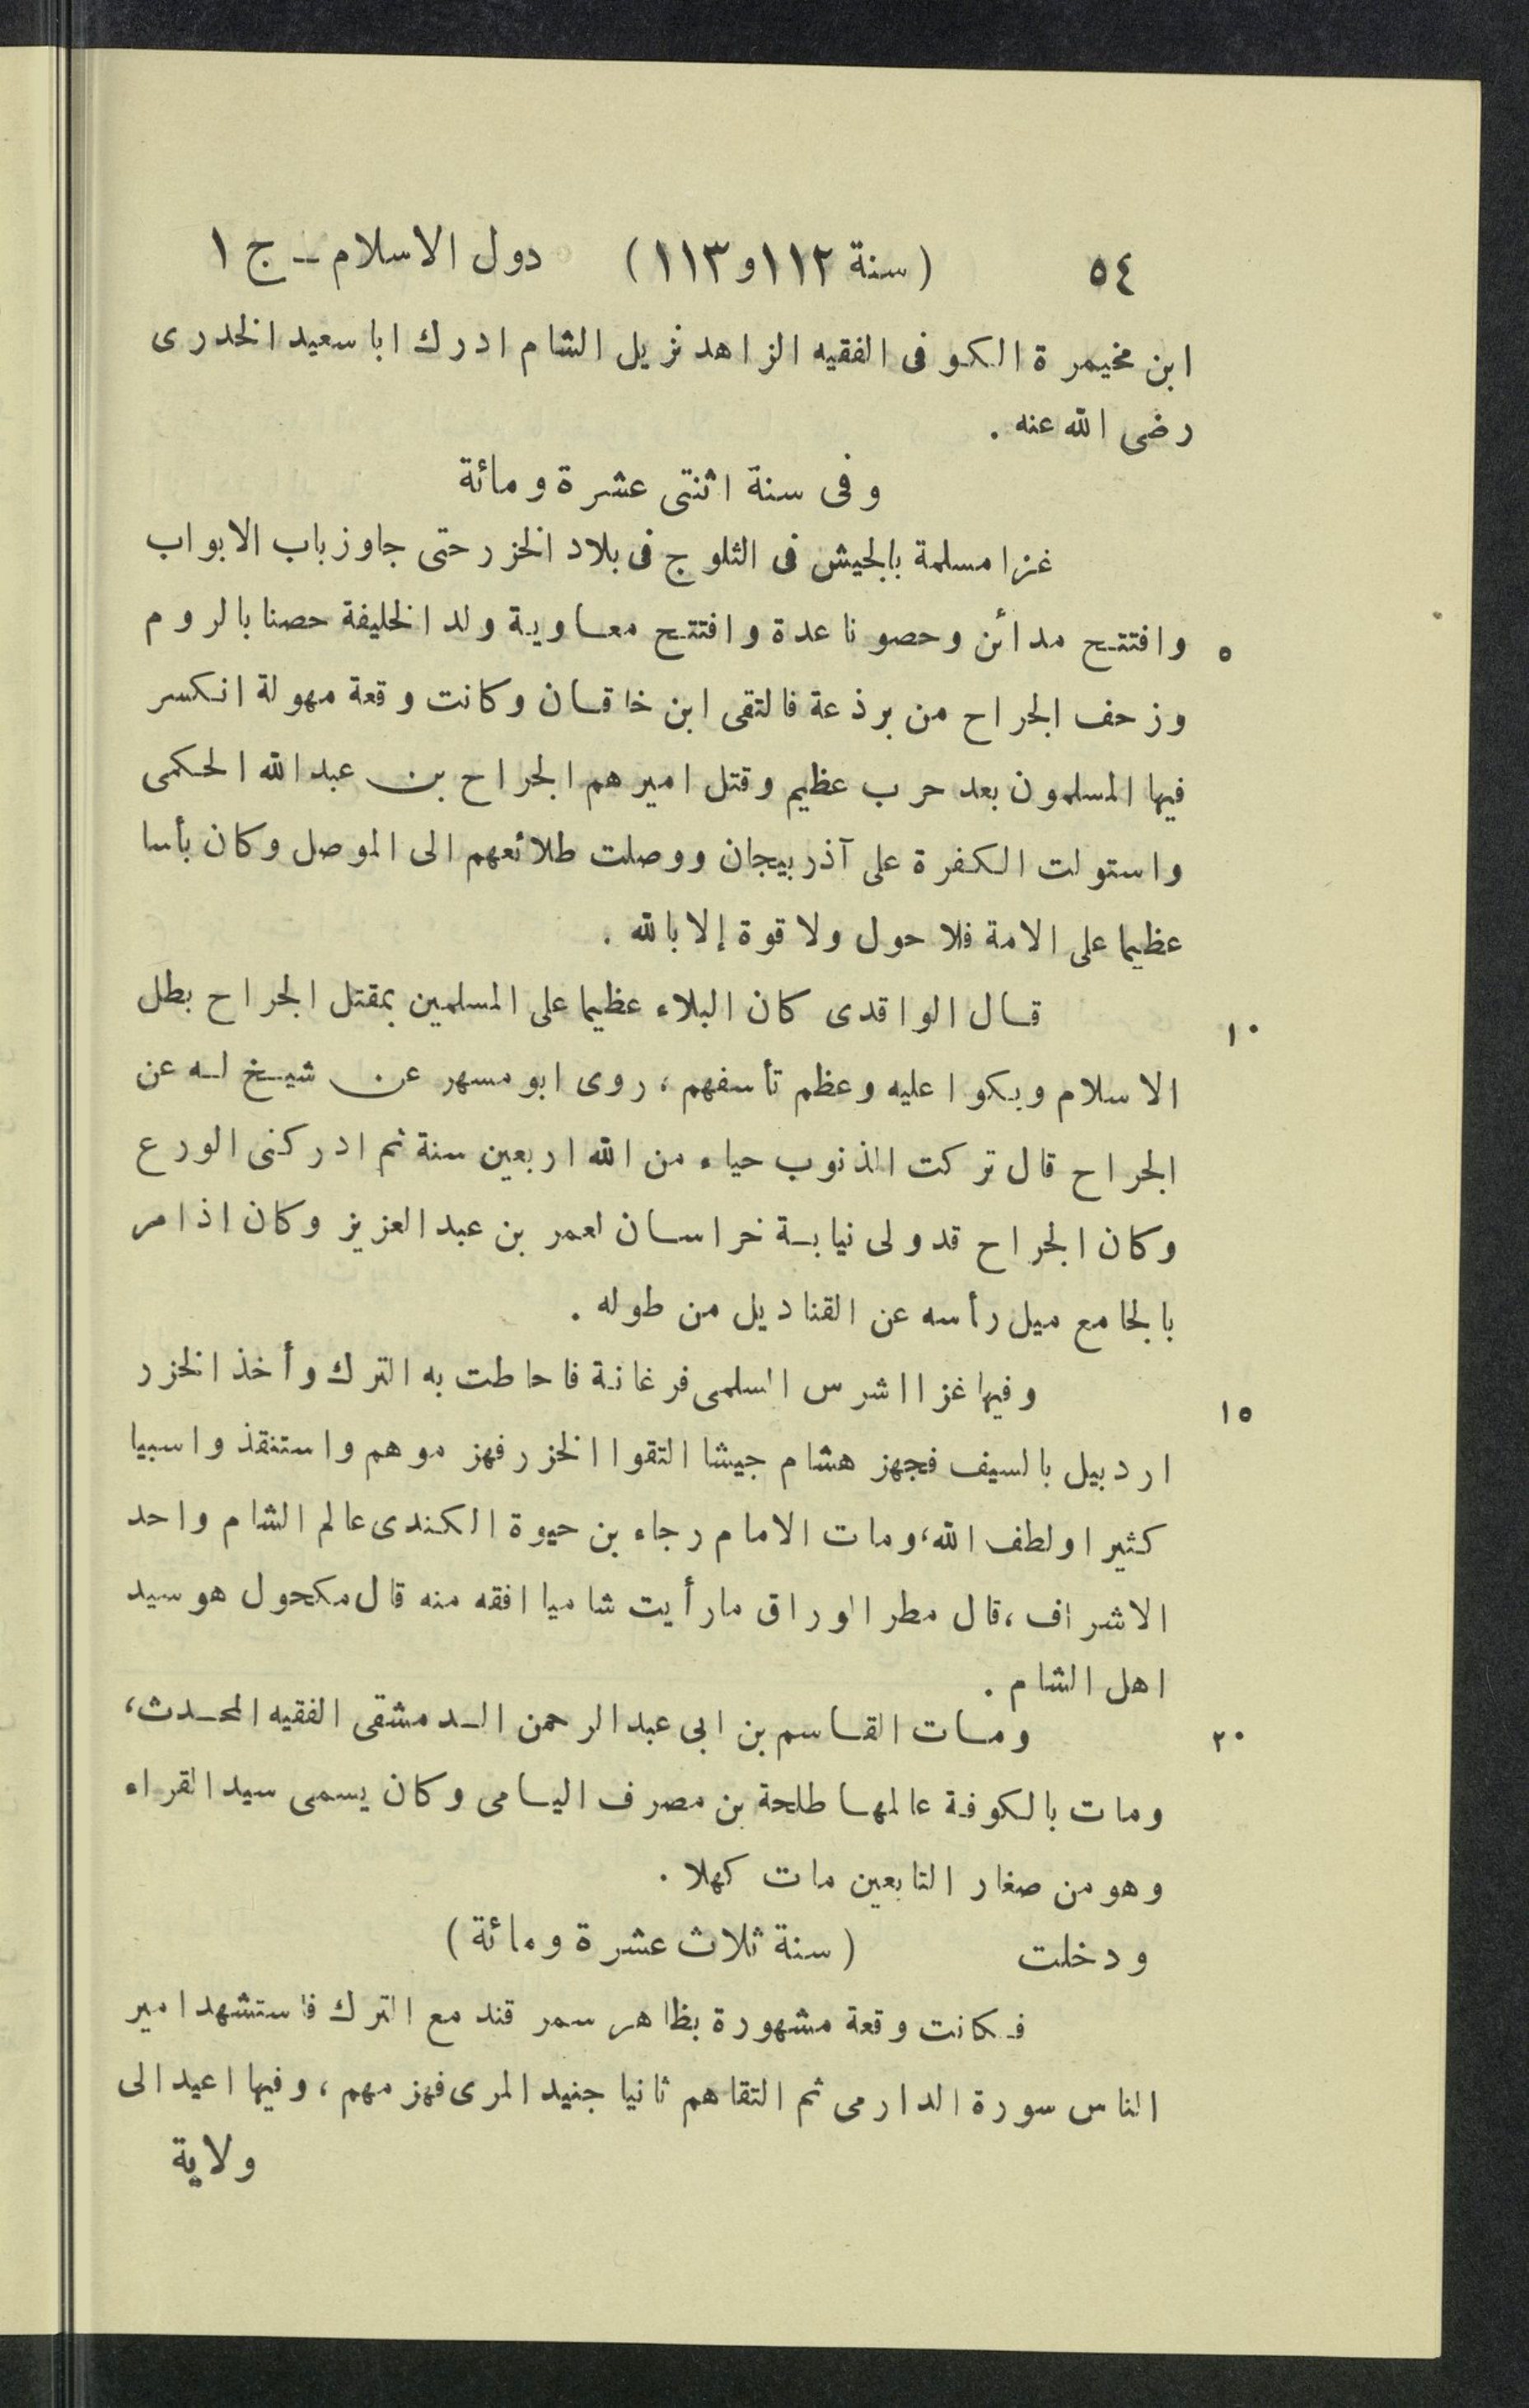 ٥٤ (سنة ١١٢و١١٣) دول الاسلام ــ ج ١
ابن مخيمرة الكوفى الفقيه الزاهد نزيل الشام ادرك ابا سعيد الخدرى
رضى الله عنه .
وفى سنة اثنتى عشرة ومائة
غزا مسلمة بالجيش فى الثلوج فى بلاد الخزر حتى جاوز باب الابواب
وافتتح مدائن وحصونا عدة وافتتح معاوية ولد الخليفة حصنا بالروم ٥
وزحف الجراح من برذعة فالتقى ابن خاقان وكانت وقعة مهولة انكسر
فيها المسلمون بعد حرب عظيم وقتل اميرهم الجراح بن عبد الله الحكمى
واستولت الكفرة على آذربيجان ووصلت طلائعهم الى الموصل وكان بأسا
عظيما على الامة فلا حول ولا قوة إلا بالله .
قال الواقدى كان البلاء عظيما على المسلمين بمقتل الجراح بطل ١٠
الاسلام وبكوا عليه وعظم تأسفهم ، روى ابو مسهر عن شيخ له عن
الجراح قال تركت الذنوب حياء من الله اربعين سنة ثم ادركنى الورع
وكان الجراح قد ولى نيابة خراسان لعمر بن عبد العزيز وكان اذا مر
بالجامع ميل رأسه عن القناديل من طوله .
وفيها غزا اشرس السلمى فرغانة فاحاطت به الترك وأخذ الخزر ١٥
اردبيل بالسيف فجهز هشام جيشا التقوا الخزر فهزموهم واستنقذوا سبيا
كثيرا ولطف الله ، ومات الامام رجاء بن حيوة الكندى عالم الشام واحد
الاشراف ، قال مطر الوراق ما رأيت شاميا افقه منه قال مكحول هو سيد
اهل الشام .
ومات القاسم بن ابى عبد الرحمن الدمشقى الفقيه المحدث ، ٢٠
ومات بالكوفة عالمها طلحة بن مصرف اليامى وكان يسمى سيد القراء
وهو من صغار التابعين مات كهلا .
ودخلت (سنة ثلاث عشرة ومائة)
فكانت وقعة مشهورة بظاهر سمرقند مع الترك فاستشهد امير
الناس سورة الدارمى ثم التقاهم ثانيا جنيد المرى فهزمهم ، وفيها اعيد الى
ولاية